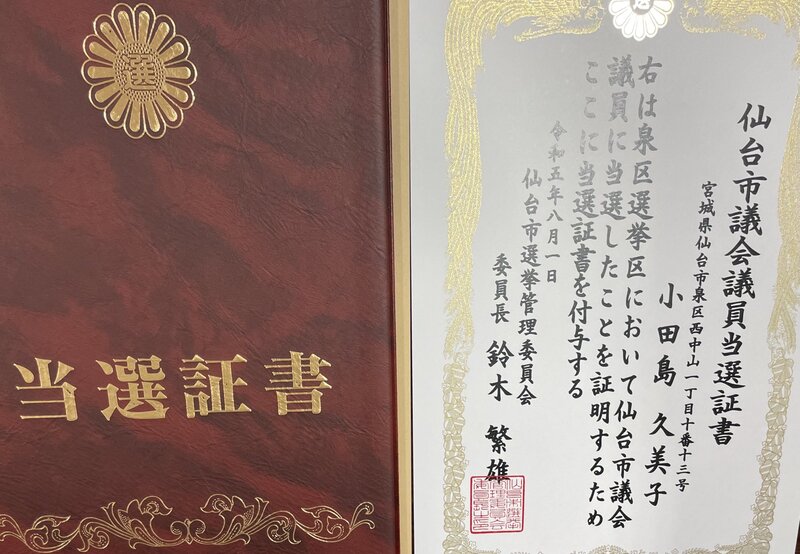 選
当選証書
仙台市議会議員当選証書
宮城県仙台市泉区西中山一丁目十番十三号
小田島 久美子
右は泉区選挙区において仙台市議会
議員に当選したことを証明するため
ここに当選証書を付与する
令和五年八月一日
仙台市選挙管理委員会
委員長 鈴木 繁雄